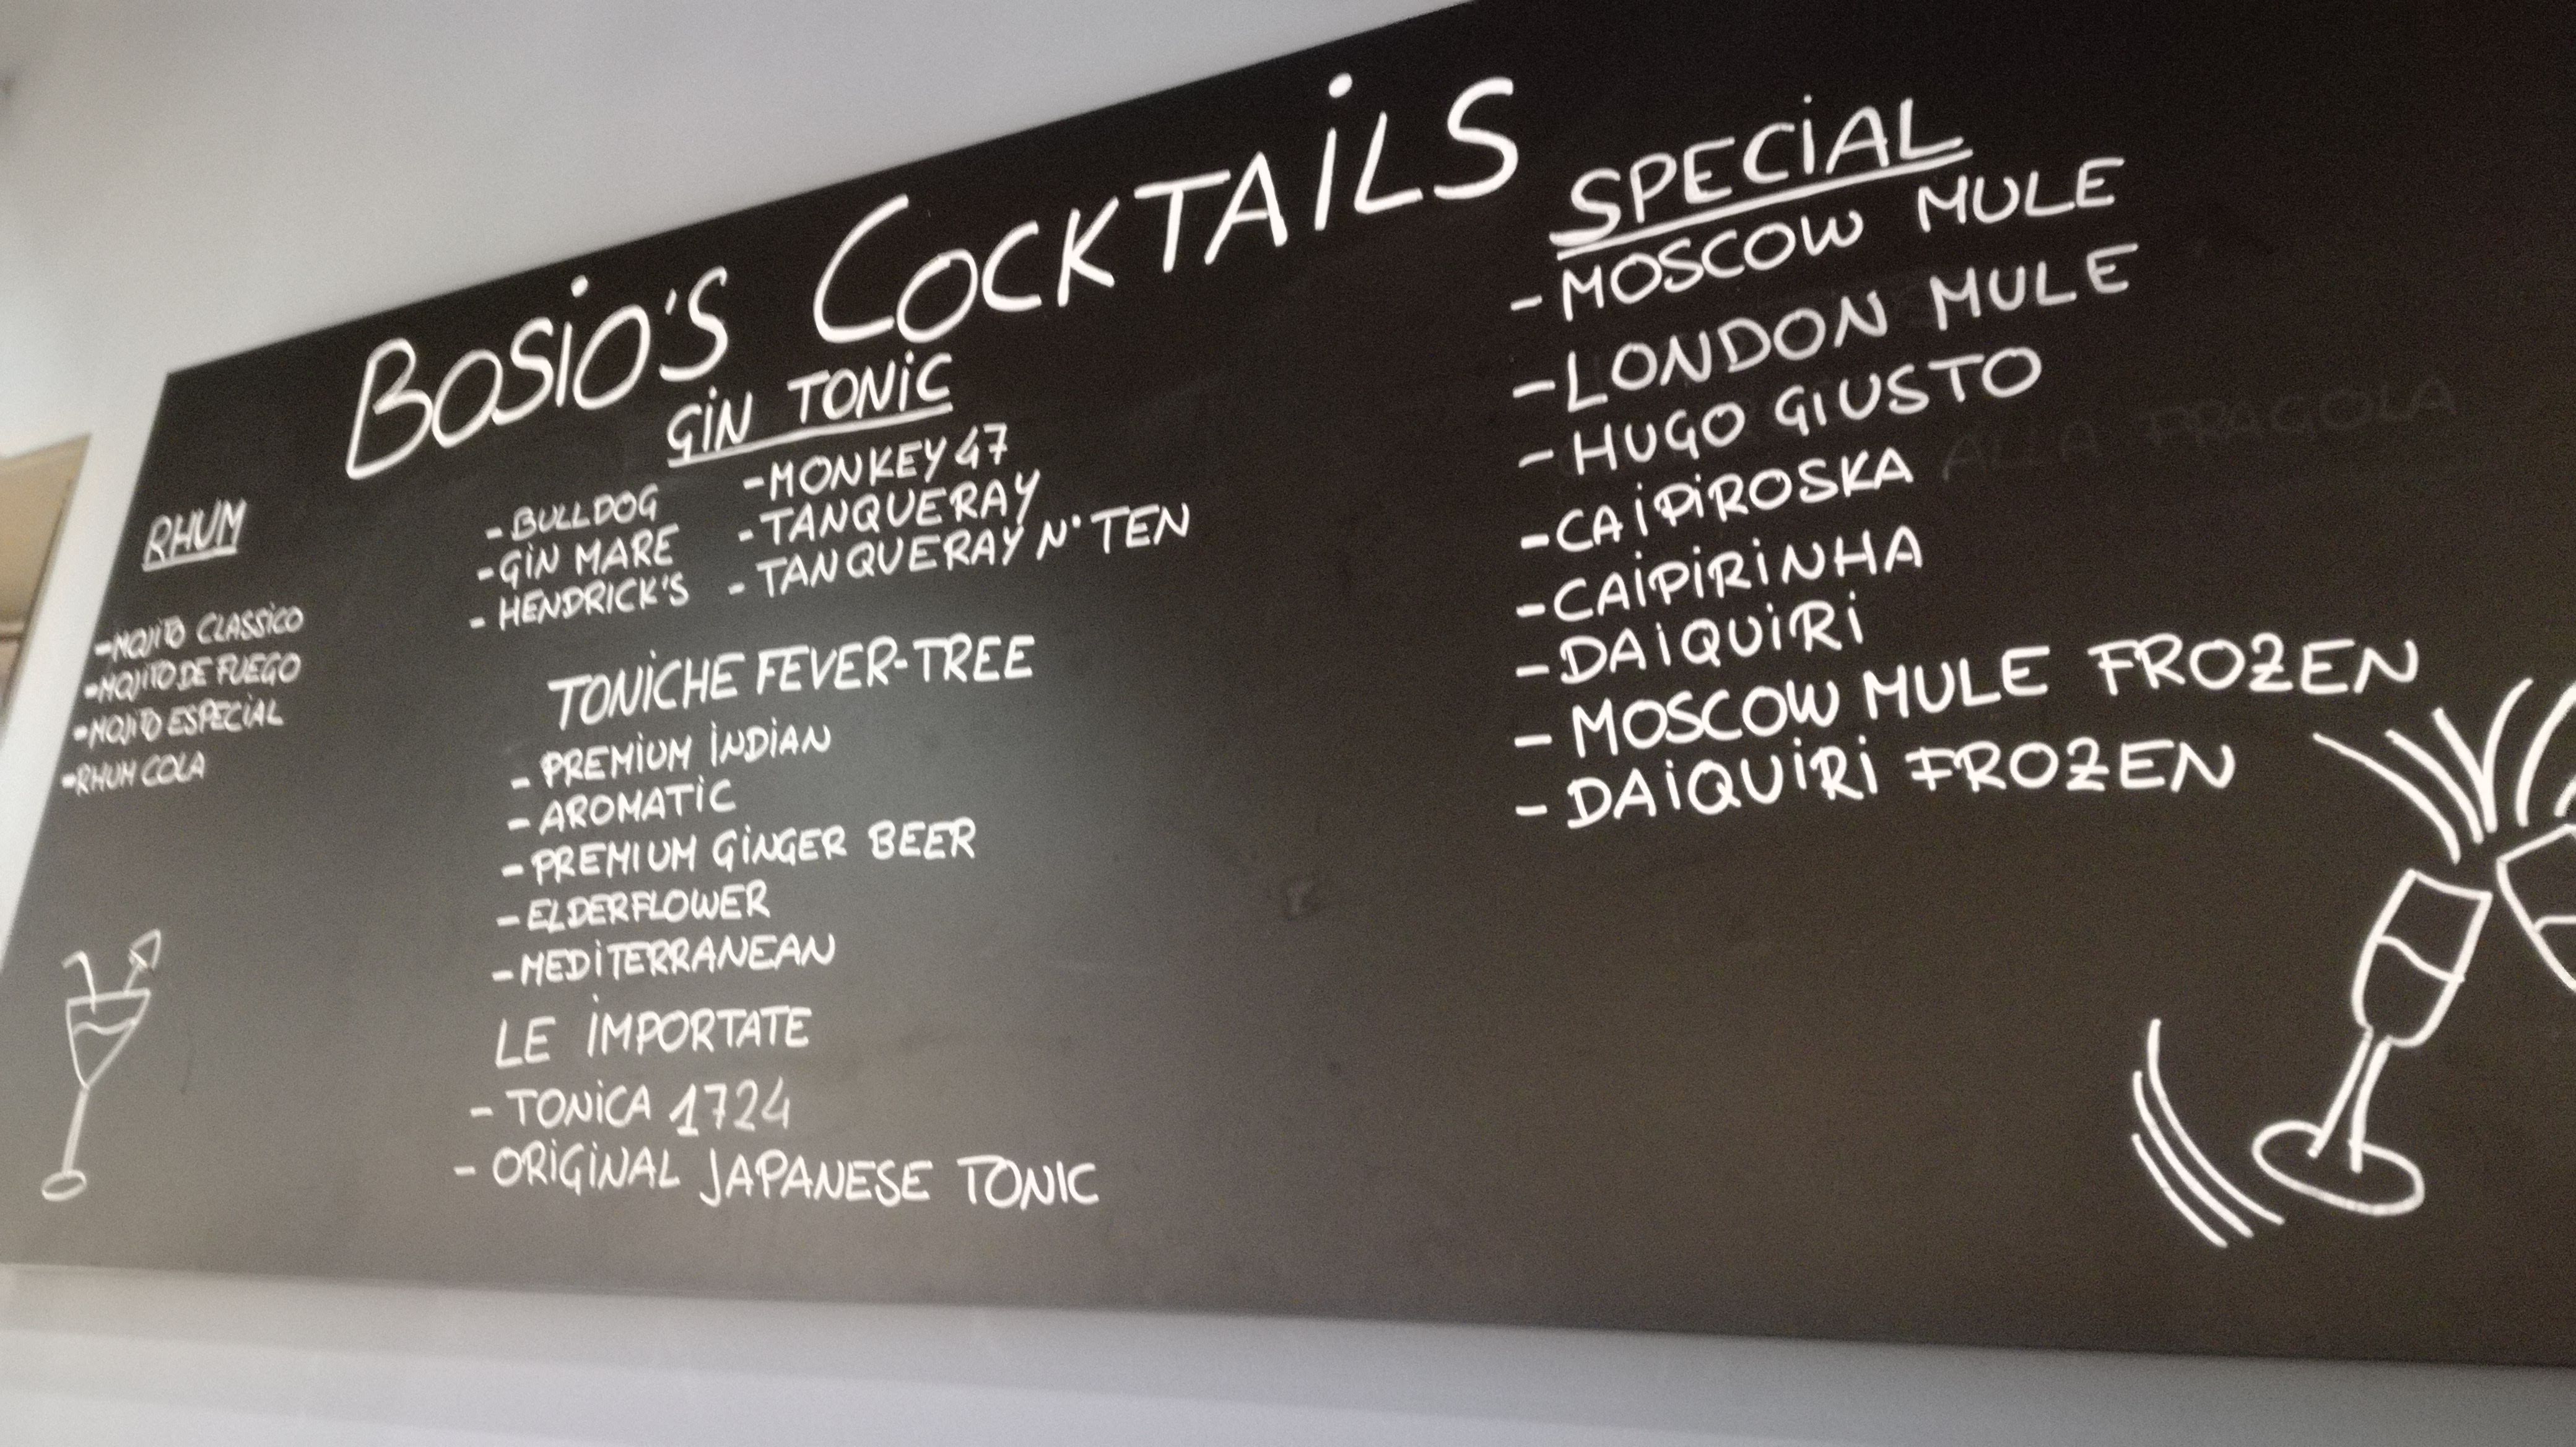 BOSIO'S COCKTAILS
RHUM
-MOJITO CLASSICO
-MOJITO DE FUEGO
-MOJITO ESPECIAL
-RHUM COLA
GIN TONIC
-BULLDOG
-GIN MARE
- HENDRICK'S
-MONKEY 47
-TANQUERAY
-TANQUERAY N° TEN
TONICHE FEVER-TREE
- PREMIUM INDIAN
- AROMATIC
- PREMIUM GINGER BEER
- ELDERFLOWER
- MEDITERRANEAN
LE IMPORTATE
- TONICA 1724
- ORIGINAL JAPANESE TONIC
SPECIAL
- MOSCOW MULE
- LONDON MULE
- HUGO GIUSTO
- CAIPIROSKA ALLA FRAGOLA
- CAIPIRINHA
- DAIQUIRI
- MOSCOW MULE FROZEN
- DAIQUIRI FROZEN